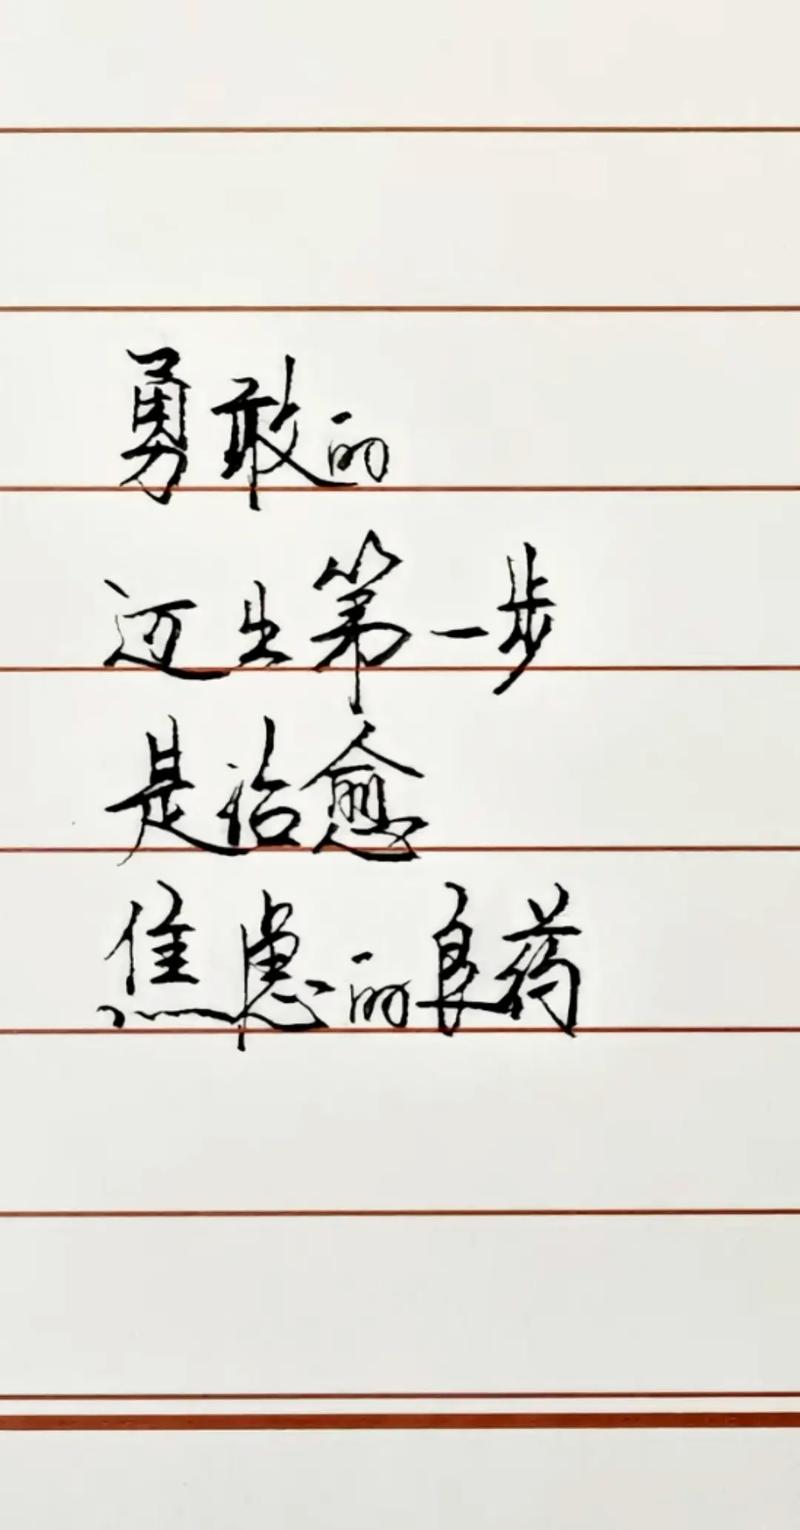 勇敢的
迈出第一步
是治愈
焦虑的良药